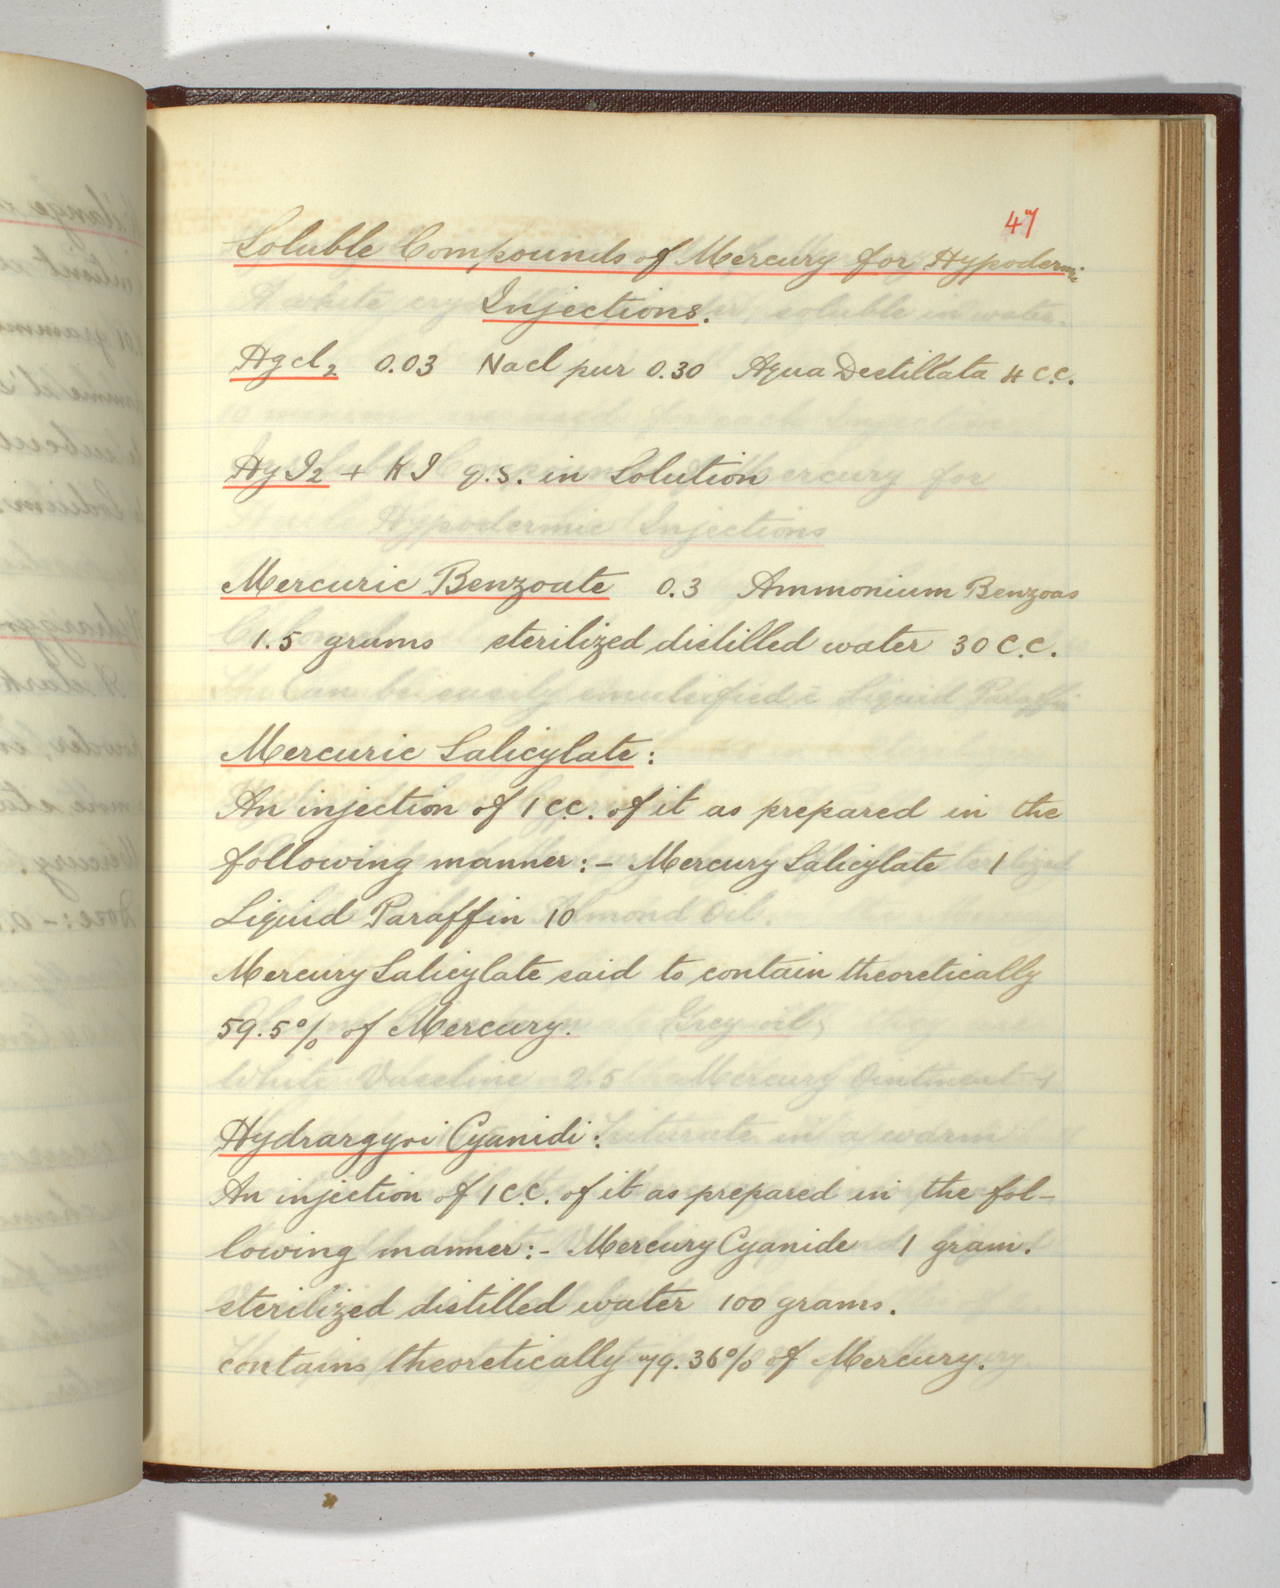 47
Soluble Compounds of Mercury for Hypodermic
Injections.
Hgcl2 0.03 Nacl pur 0.30 Aqua Destillata 4 C.C.
HgI2 + KI q.s. in Solution
Mercuric Benzoate 0.3 Ammonium Benzoas
1.5 grams sterilized distilled water 30 C.C.
Mercuric Salicylate :
An injection of 1 C.C. of it as prepared in the
following manner :- Mercury Salicylate 1
Liquid Paraffin 10
Mercury Salicylate said to contain theoretically
59.5% of Mercury.
Hydrargyri Cyanidi :
An injection of 1 C.C. of it as prepared in the fol-
lowing manner :- Mercury Cyanide 1 gram.
sterilized distilled water 100 grams.
contains theoretically 79.36% of Mercury.